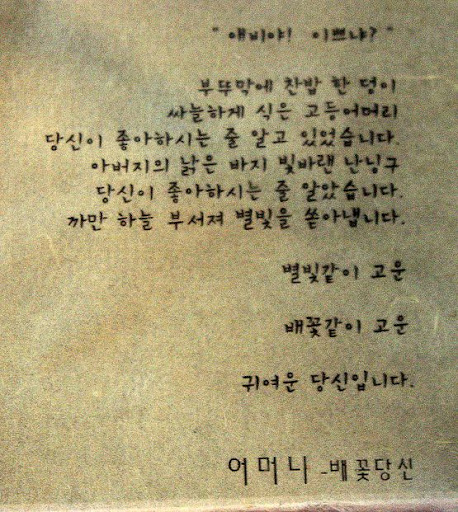 " 애비야! 이쁘냐? "
부뚜막에 찬밥 한 덩이
싸늘하게 식은 고등어머리
당신이 좋아하시는 줄 알고 있었습니다.
아버지의 낡은 바지 빛바랜 난닝구
당신이 좋아하시는 줄 알았습니다.
까만 하늘 부서져 별빛을 쏟아냅니다.
별빛같이 고운
배꽃같이 고운
귀여운 당신입니다.
어머니 -배꽃당신